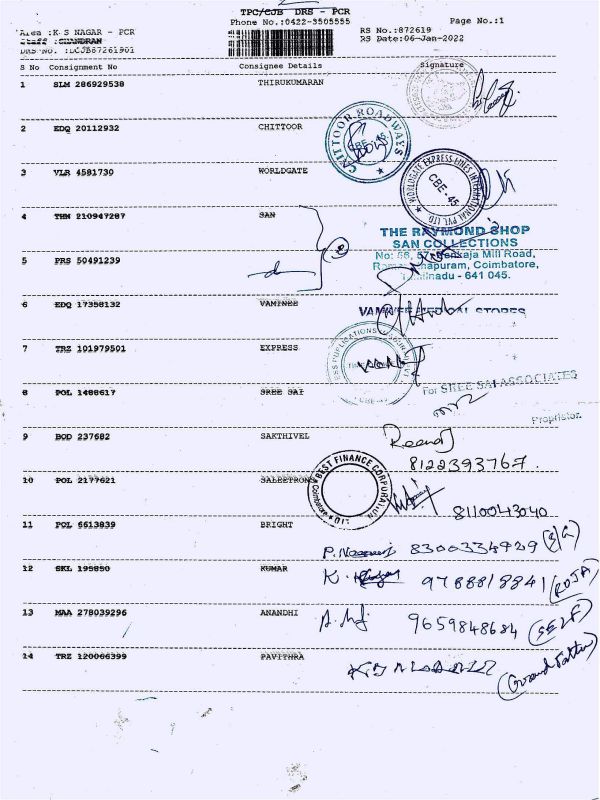 TPC/CJB DRS - PCR
Phone No.:0422-3505555 Page No.:1
Area :K S NAGAR - PCR RS No.:872619
Staff :CHANDRAN RS Date:06-Jan-2022
DRS No. :DCJB87261901
S No Consignment No Consignee Details Signature
1 SLM 286929538 THIRUKUMARAN
2 EDQ 20112932 CHITTOOR
CHITTOOR ROADWAYS
CBE-45
3 VLR 4581730 WORLDGATE
WORLDGATE EXPRESS LINES INTERNATIONAL PVT. LTD.
CBE-45
4 THN 210947287 SAN
THE RAYMOND SHOP
SAN COLLECTIONS
No: 56, 57, Venkaja Mill Road,
Coimbatore,
Tamilnadu - 641 045.
5 PRS 50491239
6 EDQ 17358132 VAMINEE
VAMNEE MEDICAL STORES
7 TRZ 101979501 EXPRESS
PUBLICATIONS
8 POL 1488617 SREE SAI
For SREE SAI ASSOCIATES
Proprietor
9 BOD 237682 SAKTHIVEL
8122393767.
10 POL 2177621 SALEETRONS
BEST FINANCE CORPORATION
8110043040
11 POL 6613839 BRIGHT
8300334929
12 SKL 195850 KUMAR
K. 9788818841 (ROJA)
13 MAA 278039296 ANANDHI
9659848684 (SELF)
14 TRZ 120066399 PAVITHRA
(Grand Father)